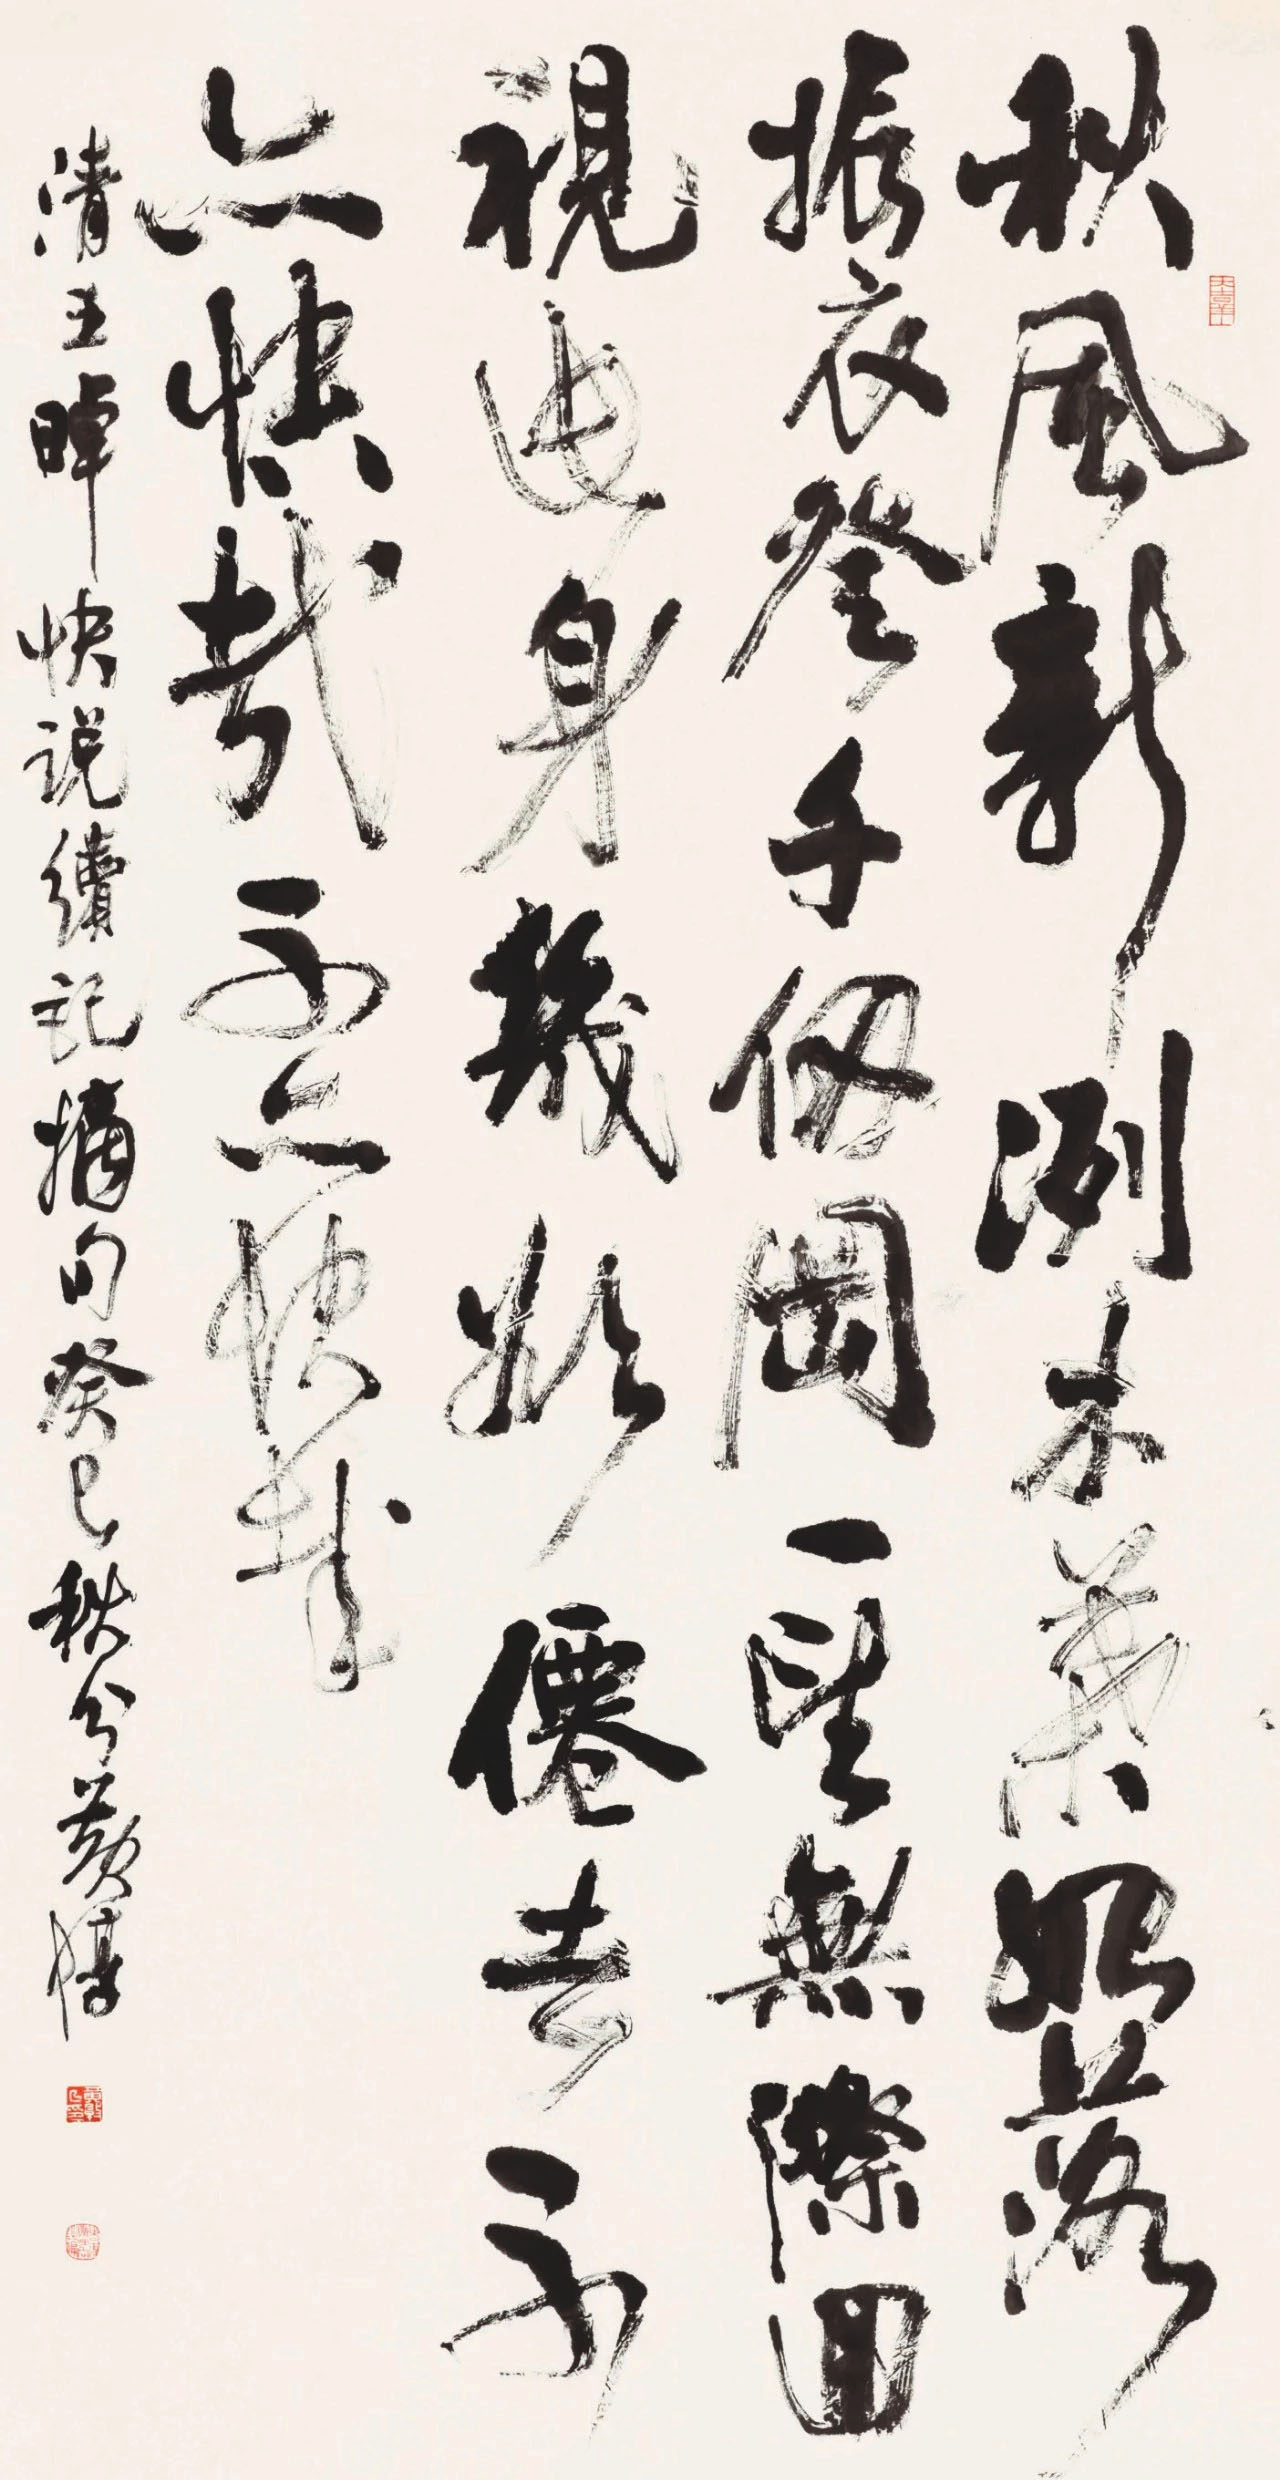 秋風新洌木葉落
振衣登千仞岡一望無際回
視此身幾欲僊去不
亦快哉不亦快哉
清王晫快説續記摘句癸巳秋分黄惇